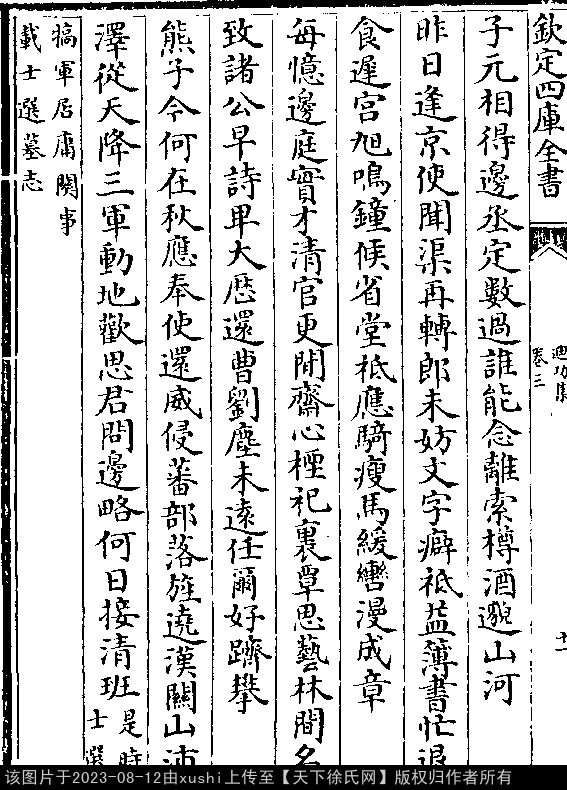 欽定四庫全書
迪功集
卷三
十一
子元相得邊丞定數過誰能念離索樽酒邈山河
昨日逢京使聞渠再轉郎未妨文字癖祗益簿書忙退
食遲宮旭鳴鐘候省堂祗應騎瘦馬緩轡漫成章
每憶邊庭實才清官更閒齋心禋祀裏覃思藝林間名
致諸公早詩卑大厯還曹劉塵未遠任爾好躋攀
熊子今何在秋應奉使還威侵蕃部落旌遶漢關山沛
澤從天降三軍動地歡思君問邊略何日接清班
是時
士選
犒軍居庸關事
載士選墓志
该图片于2023-08-12由xushi上传至【天下徐氏网】版权归作者所有